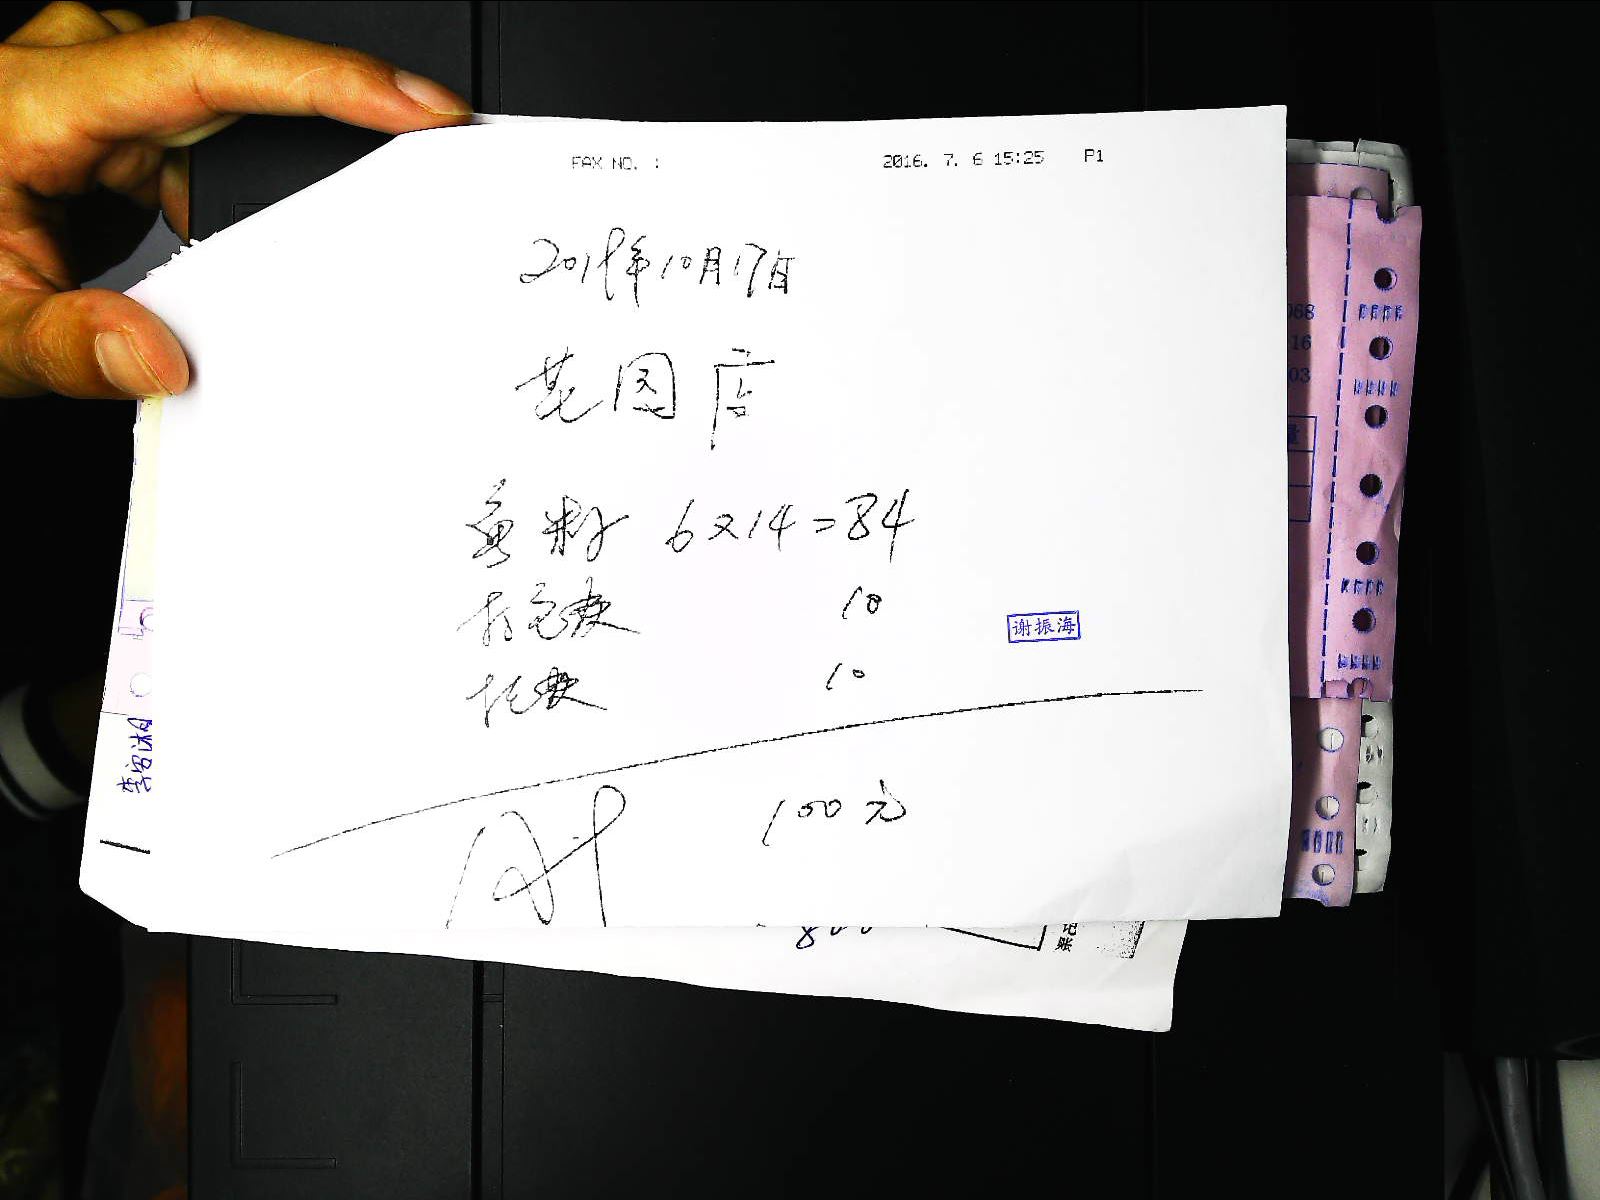 FAX NO. :
2016. 7. 6 15:25 P1
2019年10月17日
花园店
鱼籽 6×14=84
打包费 10
托费 10
谢振海
100元
800
记账
068
16
03
量